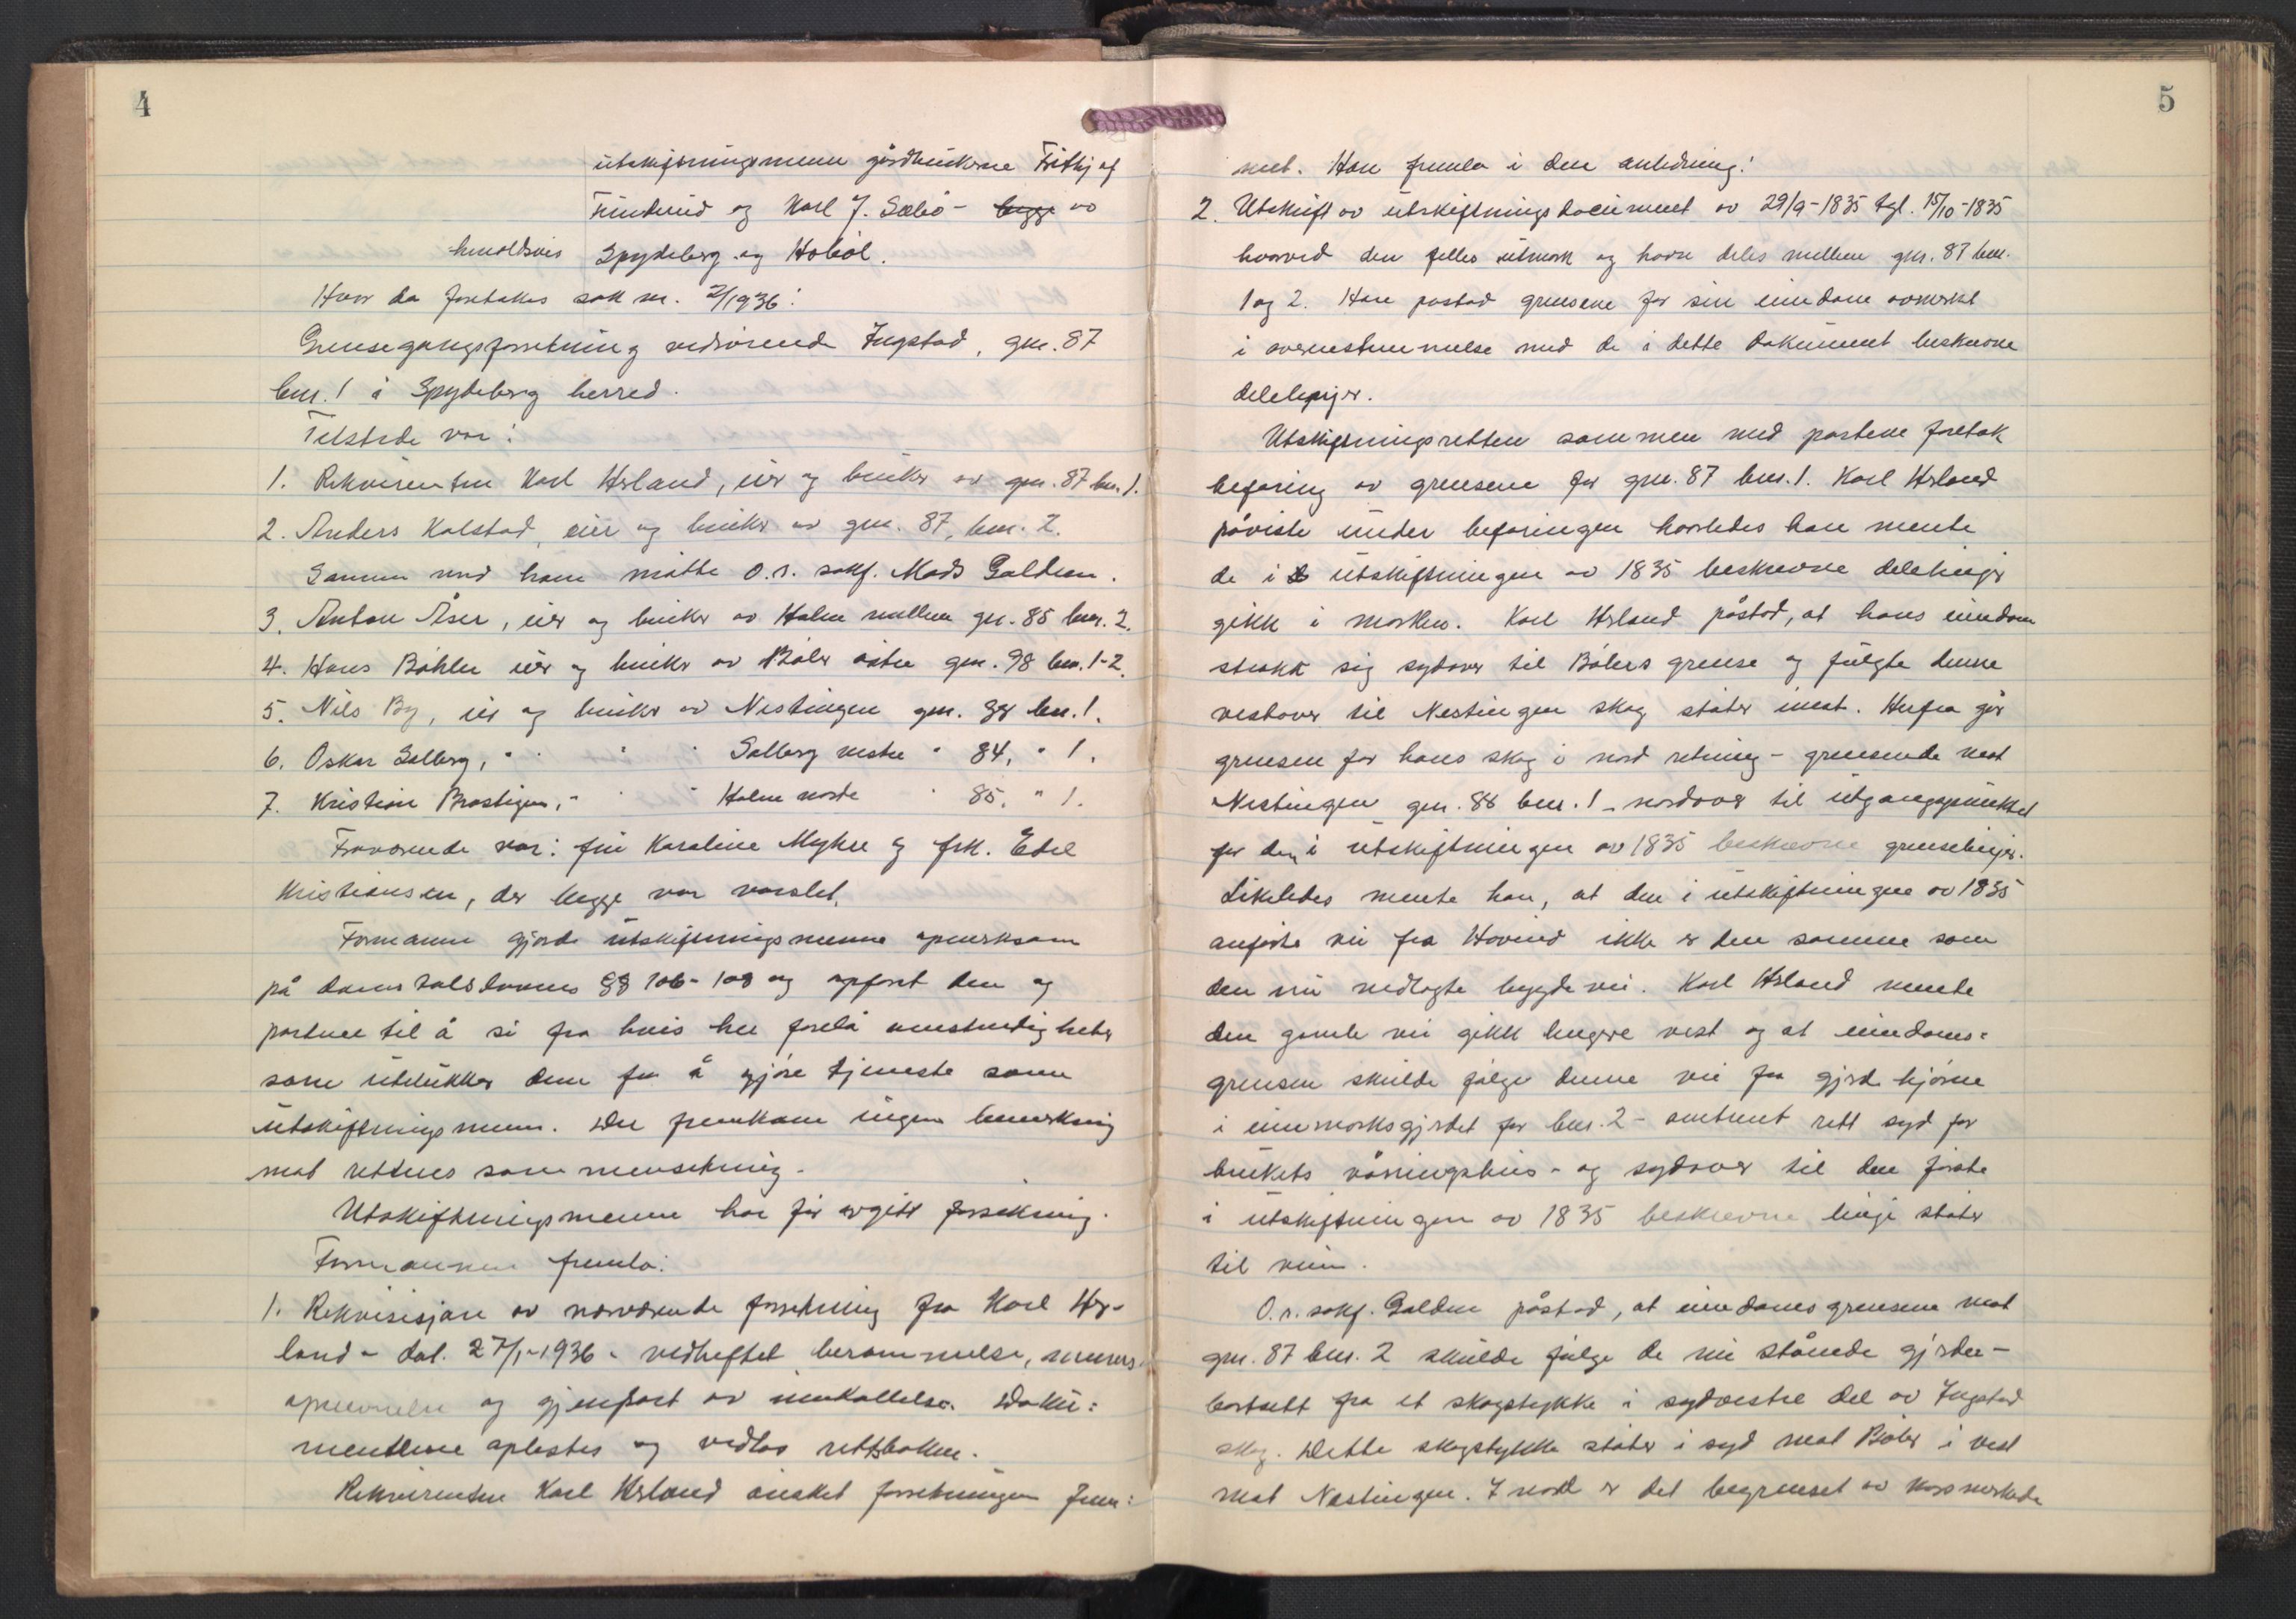 4
utskiftningsmenn gårdbrukerne Frithjof
Finderud og Karl J. Sæbö - begge av
henoldsvis Spydeberg og Hobøl.
Hvor da foretakes sak nr. 2/1936:
Grensegangsforretning vedrörende Ingstad, gnr. 87
bnr. 1 i Spydeberg herred.
Tilstede var:
1. Rekvirenten Karl Hsland, eier og bruker av gnr. 87 bnr. 1.
2. Anders Kalstad, eier og bruker av gnr. 87, bnr. 2.
Sammen med ham møtte O.r. sakf. Mads Galdem.
3. Anton Åser, eier og bruker av Holm mellem gnr. 85 bnr. 2.
4. Hans Bøhler eier og bruker av Bøler østre gnr. 98 bnr. 1-2.
5. Nils By, eier og bruker av Nestingen gnr. 88 bnr. 1.
6. Oskar Solberg, " " " Solberg vestre " 84, " 1.
7. Kristian Brastigen, " " " Holm nordre " 85, " 1.
Fraværende var: fru Karoline Myhre og frk. Edel
Kristiansen, der begge var varslet.
Formannen gjorde utskiftningsmennene opmerksom
på domstolslovens §§ 106-108 og opfordret dem og
partene til å si fra hvis her forelå omstendigheter
som utelukker dem fra å gjøre tjeneste som
utskiftningsmenn. Der fremkom ingen bemerkning
mot rettens sammensetning.
Utskiftningsmennene har før avgitt forsikring.
Formannen fremla:
1. Rekvisisjon av nærværende forretning fra Karl Hs-
land - dat. 27/1-1936 - vedheftet berammelse,
opnevnelse og gjenpart av innkallelse. Doku=
mentene oplestes og vedlas rettsboken.
Rekvirenten Karl Hsland ønsket forretningen frem=
5
met. Han fremla i den anledning:
2. Utskrift av utskiftningsdocument av 29/9-1835 tgl. 15/10-1835
hvorved den felles utmark og havn deles mellem gnr. 87 bnr.
1 og 2. Han påstod grensene for sin eiendom avmerket
i overenstemmelse med de i dette dokument beskrevne
delelinjer.
Utskiftningsretten sammen med partene foretok
befaring av grensene for gnr. 87 bnr. 1. Karl Hsland
påviste under befaringen hvorledes han mente
de i utskiftningen av 1835 beskrevne delelinjer
gikk i marken. Karl Hsland påstod, at hans eiendom
strakk sig sydover til Bølers grense og fulgte denne
vestover til Nestingen skog støter imot. Herfra går
grensen for hans skog i nord retning - grensende mot
Nestingen gnr. 88 bnr. 1 - nordover til utgangspunktet
for den i utskiftningen av 1835 beskrevne grenselinjer.
Likeledes mente han, at den i utskiftningen av 1835
anførte vei fra Hovind ikke er den samme som
den nu nedlagte bygdevei. Karl Hsland mente
den gamle vei gikk lengere vest og at eiendoms=
grensen skulde følge denne vei fra gjerdehjørne
i innmarksgjerdet for bnr. 2 - omtrent rett syd for
brukets våningshus - og sydover til den første
i utskiftningen av 1835 beskrevne linje støter
til veien.
O.r. sakf. Galdem påstod, at eiendomsgrensene mot
gnr. 87 bnr. 2 skulde følge de nu stående gjerder -
bortsett fra et skogstykke i sydvestre del av Ingstad
skog. Dette skogstykke støter i syd mot Bøler i vest
mot Nestingen. I nord er det begrenset av korsmerkede